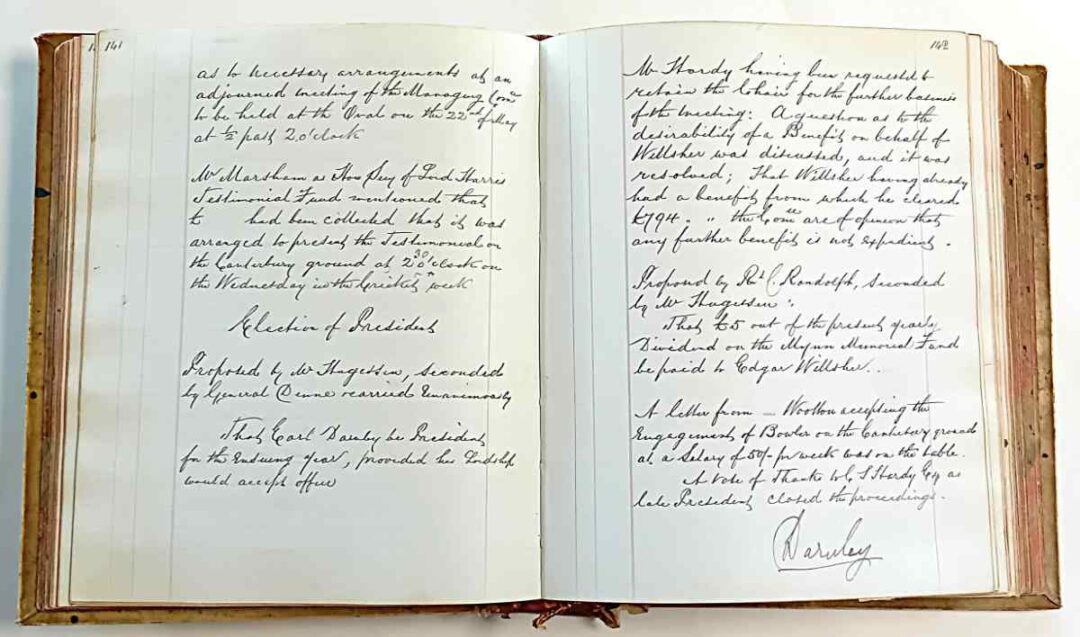 141
as to necessary arrangements at an
adjourned meeting of the Managing Comee
to be held at the Oval on the 22nd of May
at ½ past 2 o'clock
Mr Marsham as Hon Secy of Lord Harris
Testimonial Fund mentioned that
£ had been collected that it was
arranged to present the Testimonial on
the Canterbury ground at 2.30 o'clock on
the Wednesday in the Cricket week
Election of President
Proposed by Mr Hugessen, seconded
by General Denne & carried Unanimously
That Earl Darnley be President
for the Ensuing year, provided his Lordship
would accept office
142
Mr Hardy having been requested to
retain the Chair for the further business
of the meeting: A question as to the
desirability of a Benefit on behalf of
Willsher was discussed, and it was
resolved; That Willsher having already
had a benefit from which he cleared
£794. " the Comee are of opinion that
any further benefit is not expedient.
Proposed by Rd C. Randolph, seconded
by Mr Hugessen:
That £5 out of the present yearly
Dividend on the Mynn Memorial Fund
be paid to Edgar Willsher..
A letter from — Wootton accepting the
Engagement of Bowler on the Canterbury ground
at a Salary of 50/- per week was on the table.
A Vote of Thanks to C S Hardy Esq as
late President closed the proceedings.
Darnley